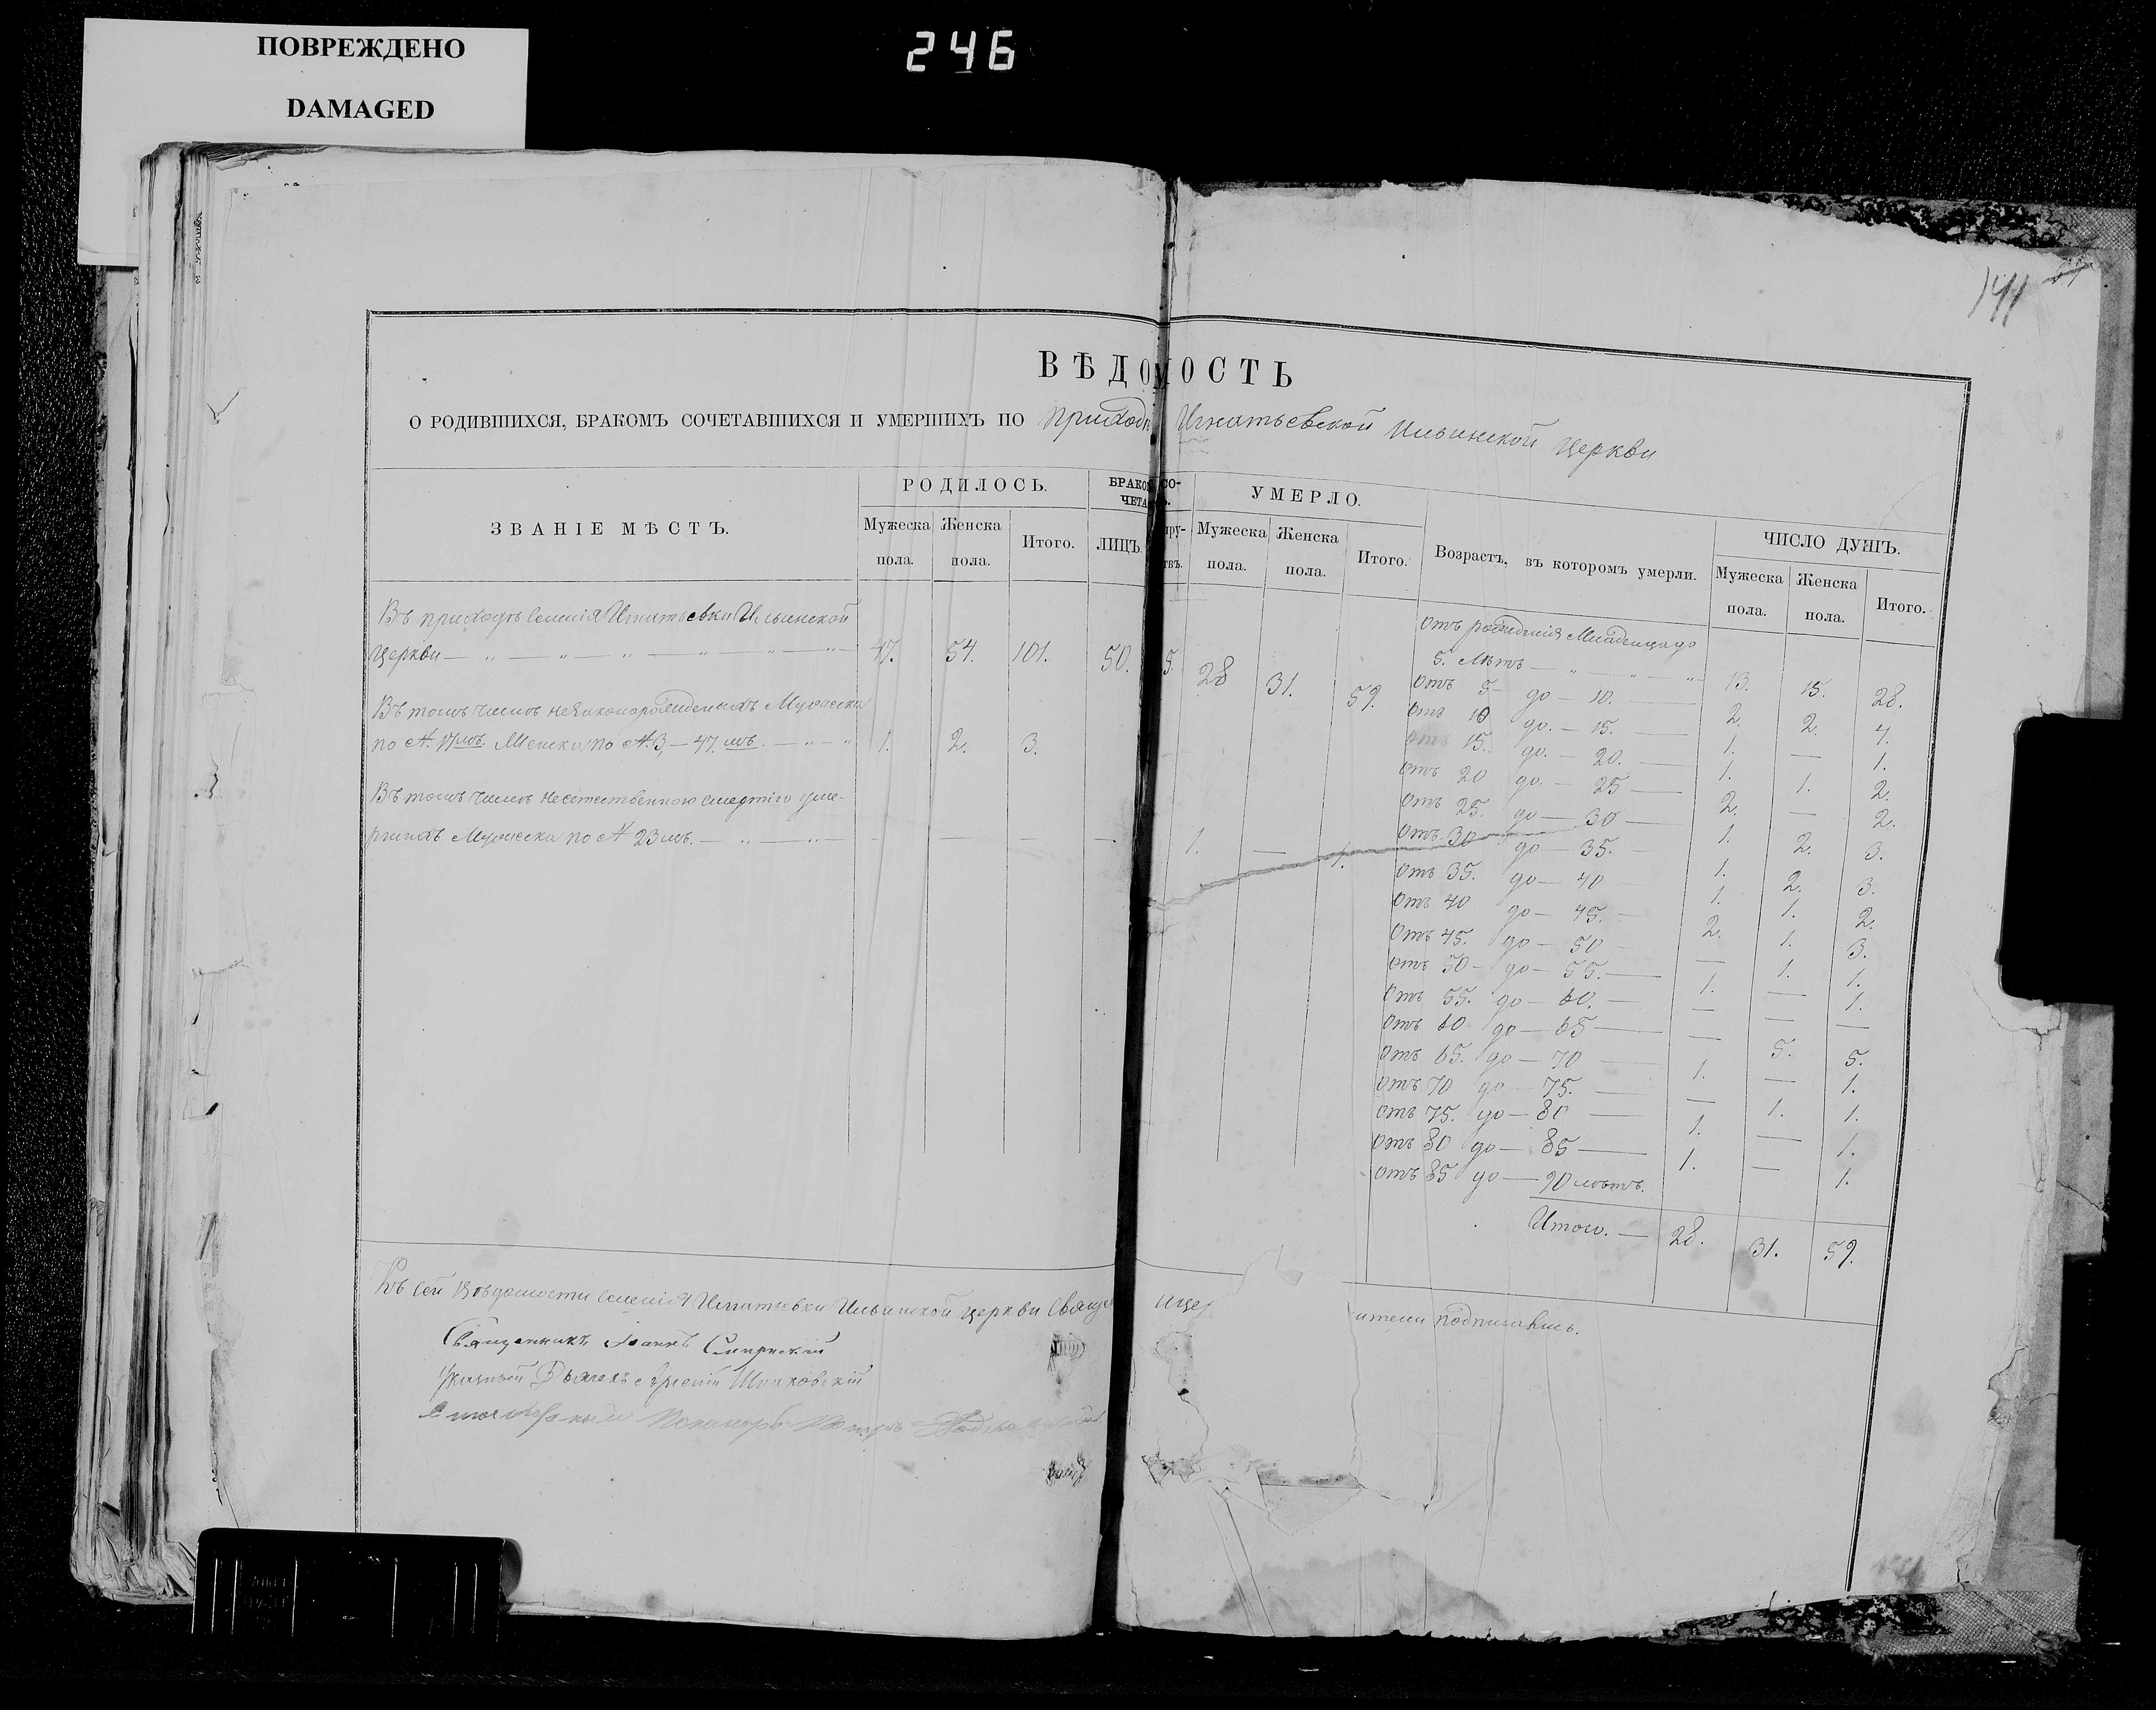 ПОВРЕЖДЕНО
DAMAGED
246
141
ВѢДОМОСТЬ
О РОДИВШИХСЯ, БРАКОМЪ СОЧЕТАВШИХСЯ И УМЕРШИХЪ ПО приходу Игнатьевской Ильинской церкви
ЗВАНІЕ МѢСТЪ.
РОДИЛОСЬ.
Мужеска пола.
Женска пола.
Итого.
БРАКОМ СО-
ЧЕТА
ЛИЦЪ.
пру-
твъ.
УМЕРЛО.
Мужеска пола.
Женска пола.
Итого.
Возрастъ, въ которомъ умерли.
ЧИСЛО ДУШЪ.
Мужеска пола.
Женска пола.
Итого.
Въ приходѣ Селенія Игнатьевки Ильинской
церкви — „ — „ — „ — „ — „ — „ — 47. 54. 101. 50. 5. 28 31. 59.
Въ томъ числѣ незаконорожденныхъ Мужеска
по № 17мъ. Женска по № 3, — 47. мъ. — „ — „ 1. 2. 3.
Въ томъ числѣ неестественною смертію уме-
ршихъ Мужеска по № 23мъ. — „ — „ — — — — — 1. — 1.
Отъ рожденія Младенца до
5. Лѣтъ — „ — „ — „ 13. 15. 28.
Отъ 5 до — 10. — 2. 2. 4.
Отъ 10 до. — 15. — 1. — 1.
Отъ 15. до. — 20. — 1. 1. 2.
Отъ 20 до. — 25 — 2. — 2.
Отъ 25. до — 30 — 1. 2. 3.
Отъ 30 до — 35. — 1. 2. 3.
Отъ 35. до — 40 — 1. 1. 2.
Отъ 40 до — 45. — 2. 1. 3.
Отъ 45. до — 50 — — 1. 1.
Отъ 50 — до — 55. — 1. — 1.
Отъ 55. до — 60. — — — —
Отъ 60 до — 65 — — 5. 5.
Отъ 65. до — 70 — 1. — 1.
Отъ 70 до — 75. — — 1. 1.
Отъ 75. до — 80 — 1. — 1.
Отъ 80 до — 85 — 1. — 1.
Отъ 85 до — 90 лѣтъ.
Итого. — 28. 31. 59.
Къ сей Вѣдомости Селенія Игнатьевки Ильинской церкви Свящ ители подписались.
Священникъ Іоаннъ
Дьячекъ
Пономарь